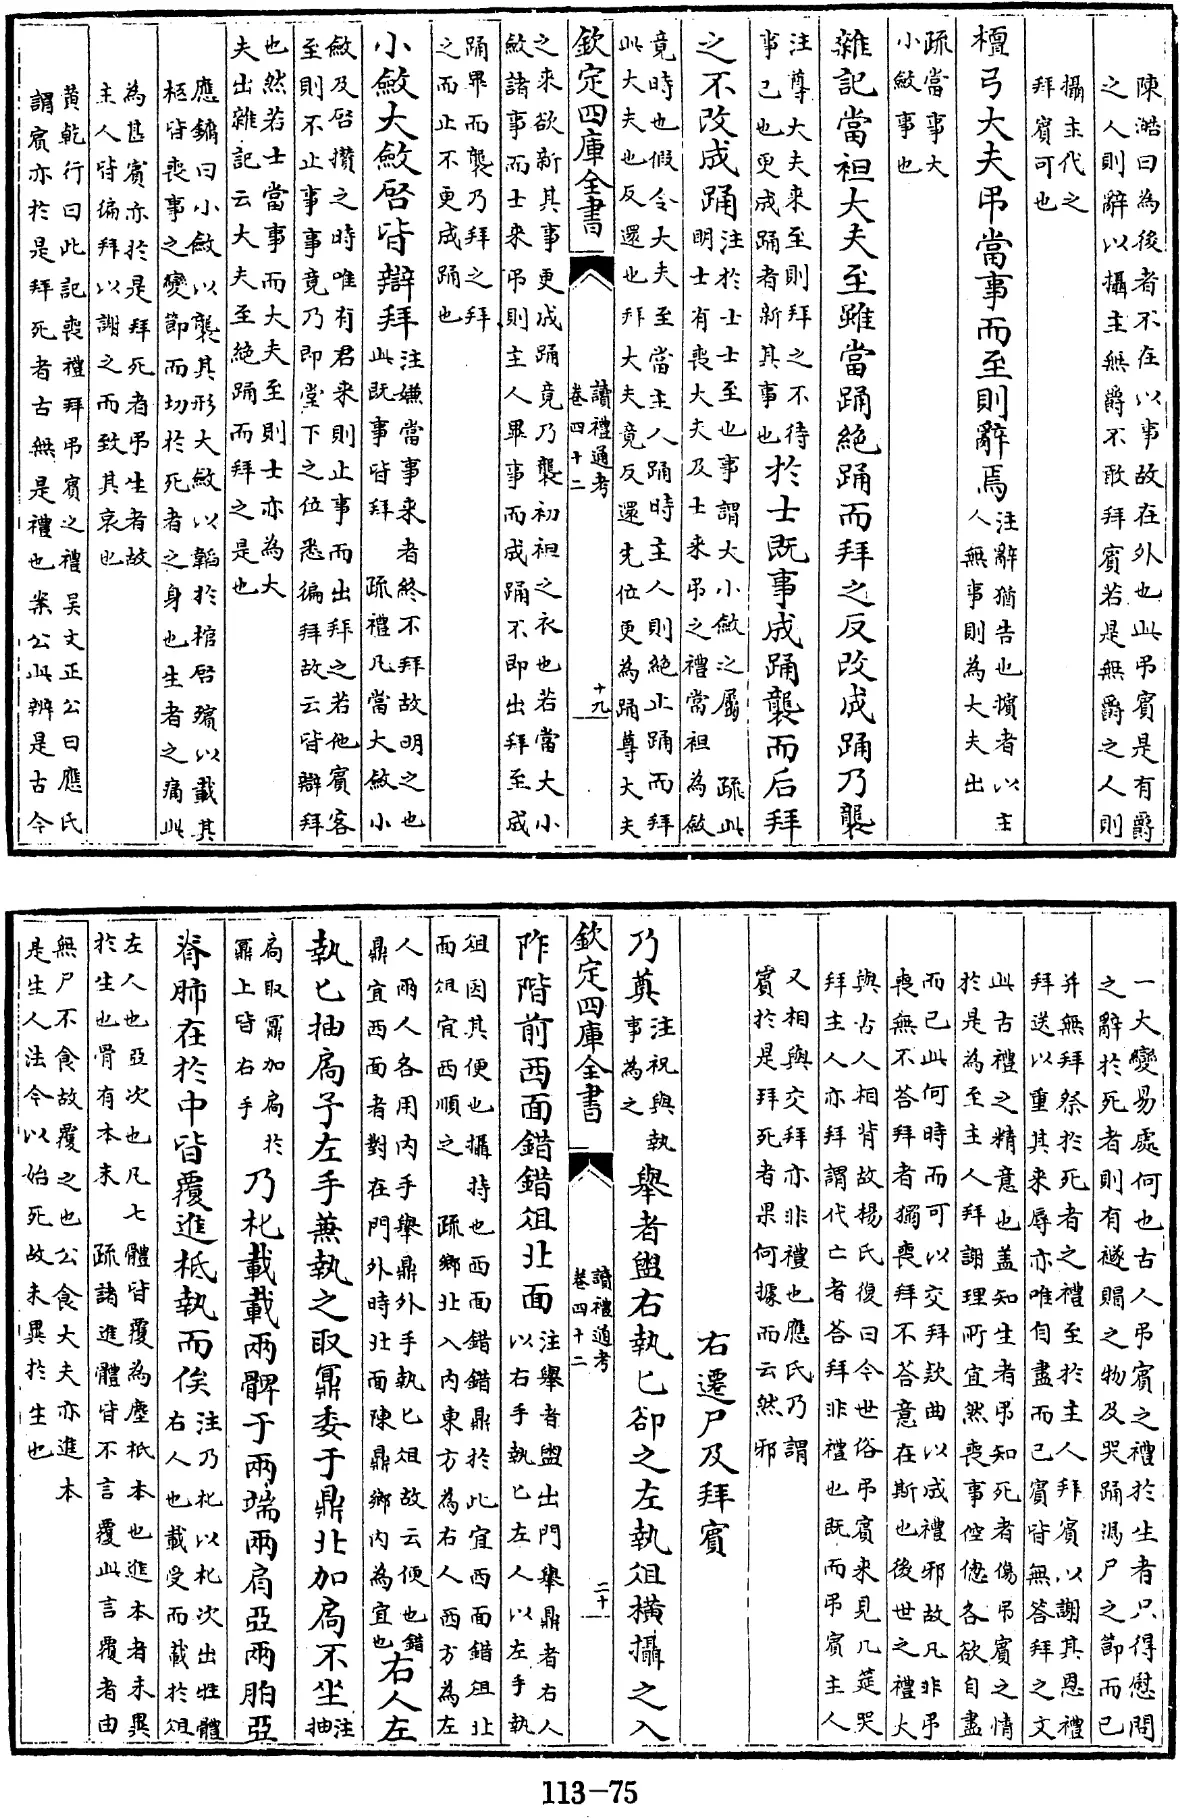 陳澔曰為後者不在以事故在外也此弔賓是有爵
之人則辭以攝主無爵不敢拜賓若是無爵之人則
攝主代之
拜賓可也
檀弓大夫弔當事而至則辭焉
注辭猶告也擯者以主
人無事則為大夫出
疏當事大
小斂事也
雜記當袒大夫至雖當踊絶踊而拜之反改成踊乃襲
注尊大夫来至則拜之不待
事已也更成踊者新其事也
於士既事成踊襲而后拜
之不改成踊
注於士士至也事謂大小斂之屬 疏此
明士有喪大夫及士来弔之禮當袒為斂
竟時也假令大夫至當主人踊時主人則絶止踊而拜
此大夫也反還也拜大夫竟反還先位更為踊尊大夫
欽定四庫全書
讀禮通考
卷四十二
十九
之来欲新其事更成踊竟乃襲初袒之衣也若當大小
斂諸事而士来弔則主人畢事而成踊不即出拜至成
踊畢而襲乃拜之拜
之而止不更成踊也
小斂大斂啓皆辯拜
注嫌當事来者終不拜故明之也
此既事皆拜 疏禮凡當大斂小
斂及啓攢之時唯有君来則止事而出拜之若他賓客
至則不止事事竟乃即堂下之位悉徧拜故云皆辯拜
也然若士當事而大夫至則士亦為大
夫出雜記云大夫至絶踊而拜之是也
應鏞曰小斂以襲其形大斂以韜於棺啓殯以載其
柩皆喪事之變節而切於死者之身也生者之痛此
為甚賓亦於是拜死者弔生者故
主人皆徧拜以謝之而致其哀也
黄乾行曰此記喪禮拜弔賓之禮吴文正公曰應氏
謂賓亦於是拜死者古無是禮也案公此辨是古今
一大變易處何也古人弔賓之禮於生者只得慰問
之辭於死者則有襚賵之物及哭踊馮尸之節而已
并無拜祭於死者之禮至於主人拜賓以謝其恩禮
拜送以重其来辱亦唯自盡而已賓皆無答拜之文
此古禮之精意也盖知生者弔知死者傷弔賓之情
於是為至主人拜謝理所宜然喪事倥傯各欲自盡
而已此何時而可以交拜欵曲以成禮邪故凡非弔
喪無不答拜者獨喪拜不答意在斯也後世之禮大
與古人相背故楊氏復曰今世俗弔賓来見几筵哭
拜主人亦拜謂代亡者答拜非禮也既而弔賓主人
又相與交拜亦非禮也應氏乃謂
賓於是拜死者果何據而云然邪
右遷尸及拜賓
乃奠
注祝與執
事為之
舉者盥右執匕卻之左執俎横攝之入
欽定四庫全書
讀禮通考
卷四十二
二十
阼階前西面錯錯俎北面
注舉者盥出門舉鼎者右人
以右手執匕左人以左手執
俎因其便也攝持也西面錯錯鼎於此宜西面錯俎北
面俎宜西順之 疏鄉北入内東方為右人西方為左
人兩人各用内手舉鼎外手執匕俎故云便也錯
鼎宜西面者對在門外時北面陳鼎鄉内為宜也
右人左
執匕抽扃予左手兼執之取鼏委于鼎北加扃不坐
注
抽
扃取鼏加扃於
鼏上皆右手
乃朼載載兩髀于兩端兩肩亞兩胉亞
脊肺在於中皆覆進柢執而俟
注乃朼以朼次出牲體
右人也載受而載於俎
左人也亞次也凡七體皆覆為塵柢本也進本者未異
於生也骨有本末 疏諸進體皆不言覆此言覆者由
無尸不食故覆之也公食大夫亦進本
是生人法今以始死故未異於生也
113-75